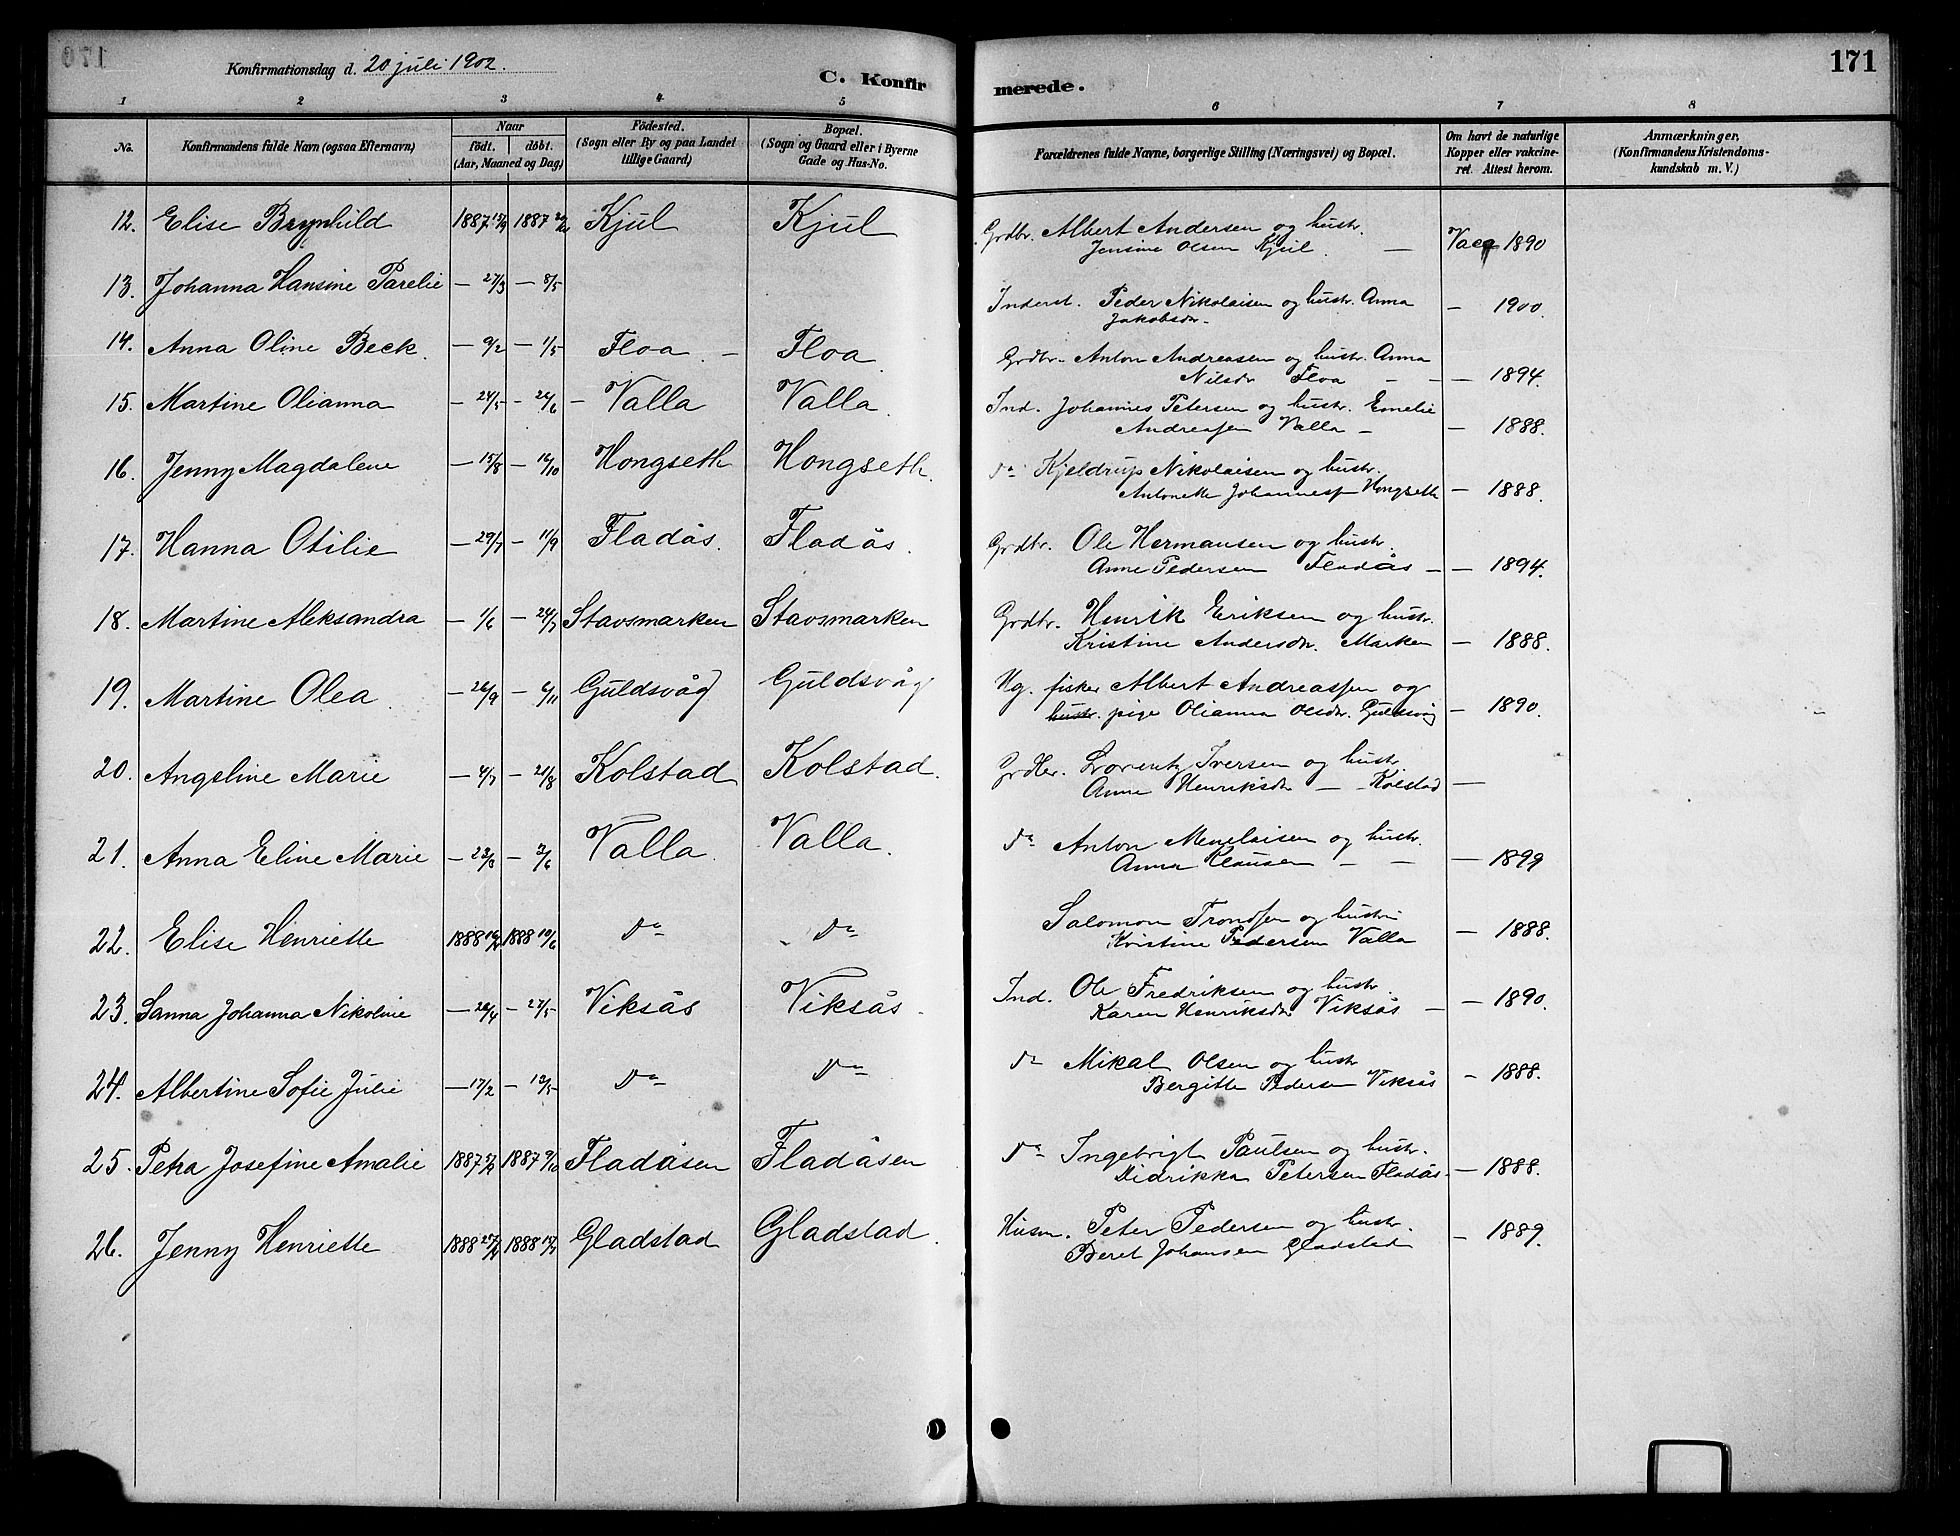 Konfirmationsdag d. 20 juli 1902.
C. Konfirmerede.
171
1 2 3 4 5 6 7 8
No. Konfirmandens fulde Navn (ogsaa Efternavn) Naar født. døbt. (Aar, Maaned og Dag) Födested. (Sogn eller By og paa Landet tillige Gaard) Bopæl. (Sogn og Gaard eller i Byerne Gade og Hus-No. Forældrenes fulde Navne, borgerlige Stilling (Næringsvei) og Bopæl. Om havt de naturlige Kopper eller vakcineret. Attest herom. Anmærkninger. (Konfirmandens Kristendomskundskab m. V.)
12. Elise Brynhild 1887 1887 Kjul Kjul Grdbr. Albert Andersen og hustr.
Jensine Olsen Kjul. — Vacc 1890
13. Johanna Hansine Parelie — 27/3 — 8/5 Inderst. Peder Nikolaisen og hustr. Anna
Jakobsdr — 1900.
14. Anna Oline Beck. — 9/2 — 1/5 Floa — Floa Grdbr. Anton Andreasen og hustr. Anna
Nilsdr Floa — — 1894.
15. Martine Olianna — 24/5 — 26/6 — Valla Valla. Ind. Johannes Petersen og hustr. Emelie
Andreasen Valla — — 1888.
16. Jenny Magdalene — 15/8 — 16/10 Hongseth Hongseth. do Kjeldrup Nikolaisen og hustr.
Antonette Johannesen Hongseth — 1888.
17. Hanna Otilie — 29/7 — 11/9 Fladås. Fladås. Grdbr. Ole Hermansen og hustr.
Anne Pedersen Fladås — — 1894.
18. Martine Aleksandra — 1/6 — 24/7 Stavsmarken Stavsmarken Grdbr. Henrik Eriksen og hustr.
Kristine Andersdr. Marken — 1888.
19. Martine Olea — 26/9 — 6/11 Guldsvåg Guldsvåg Ug. fisker Albert Andreassen og
hustr. pige Olianna Olsdr. Guldsvåg — 1890.
20. Angeline Marie — 4/7 — 21/8 Kolstad Kolstad. Grdbr. Lorentz Iversen og hustr.
Anne Henriksdr — Kolstad —
21. Anna Eline Marie — 23/3 — 2/6 Valla Valla. do Anton Menelaisen og hustr.
Anna Klausen — — — 1899
22. Elise Henriette 1888 1888 10/6 do do Salomon Trondsen og hustr
Kristine Pedersen Valla — 1888.
23. Sanna Johanna Nikoline — 26/4 — 27/5 Viksås Viksås. Ind. Ole Fredriksen og hustr.
Karen Henriksdr Viksås — — 1890.
24. Albertine Sofie Julie — 17/2 — 12/5 do do do Mikal Olsen og hustr
Bergitte Pedersen Viksås — 1888.
25. Petra Josefine Amalie 1887 1887 9/10 Fladåsen Fladåsen do Ingebrigt Paulsen og hustr.
Didrikka Petersen Fladås — 1888.
26. Jenny Henriette 1888 1888 Gladstad Gladstad. Husm. Peter Pedersen og hustr.
Beret Johansen Gladstad — 1889.